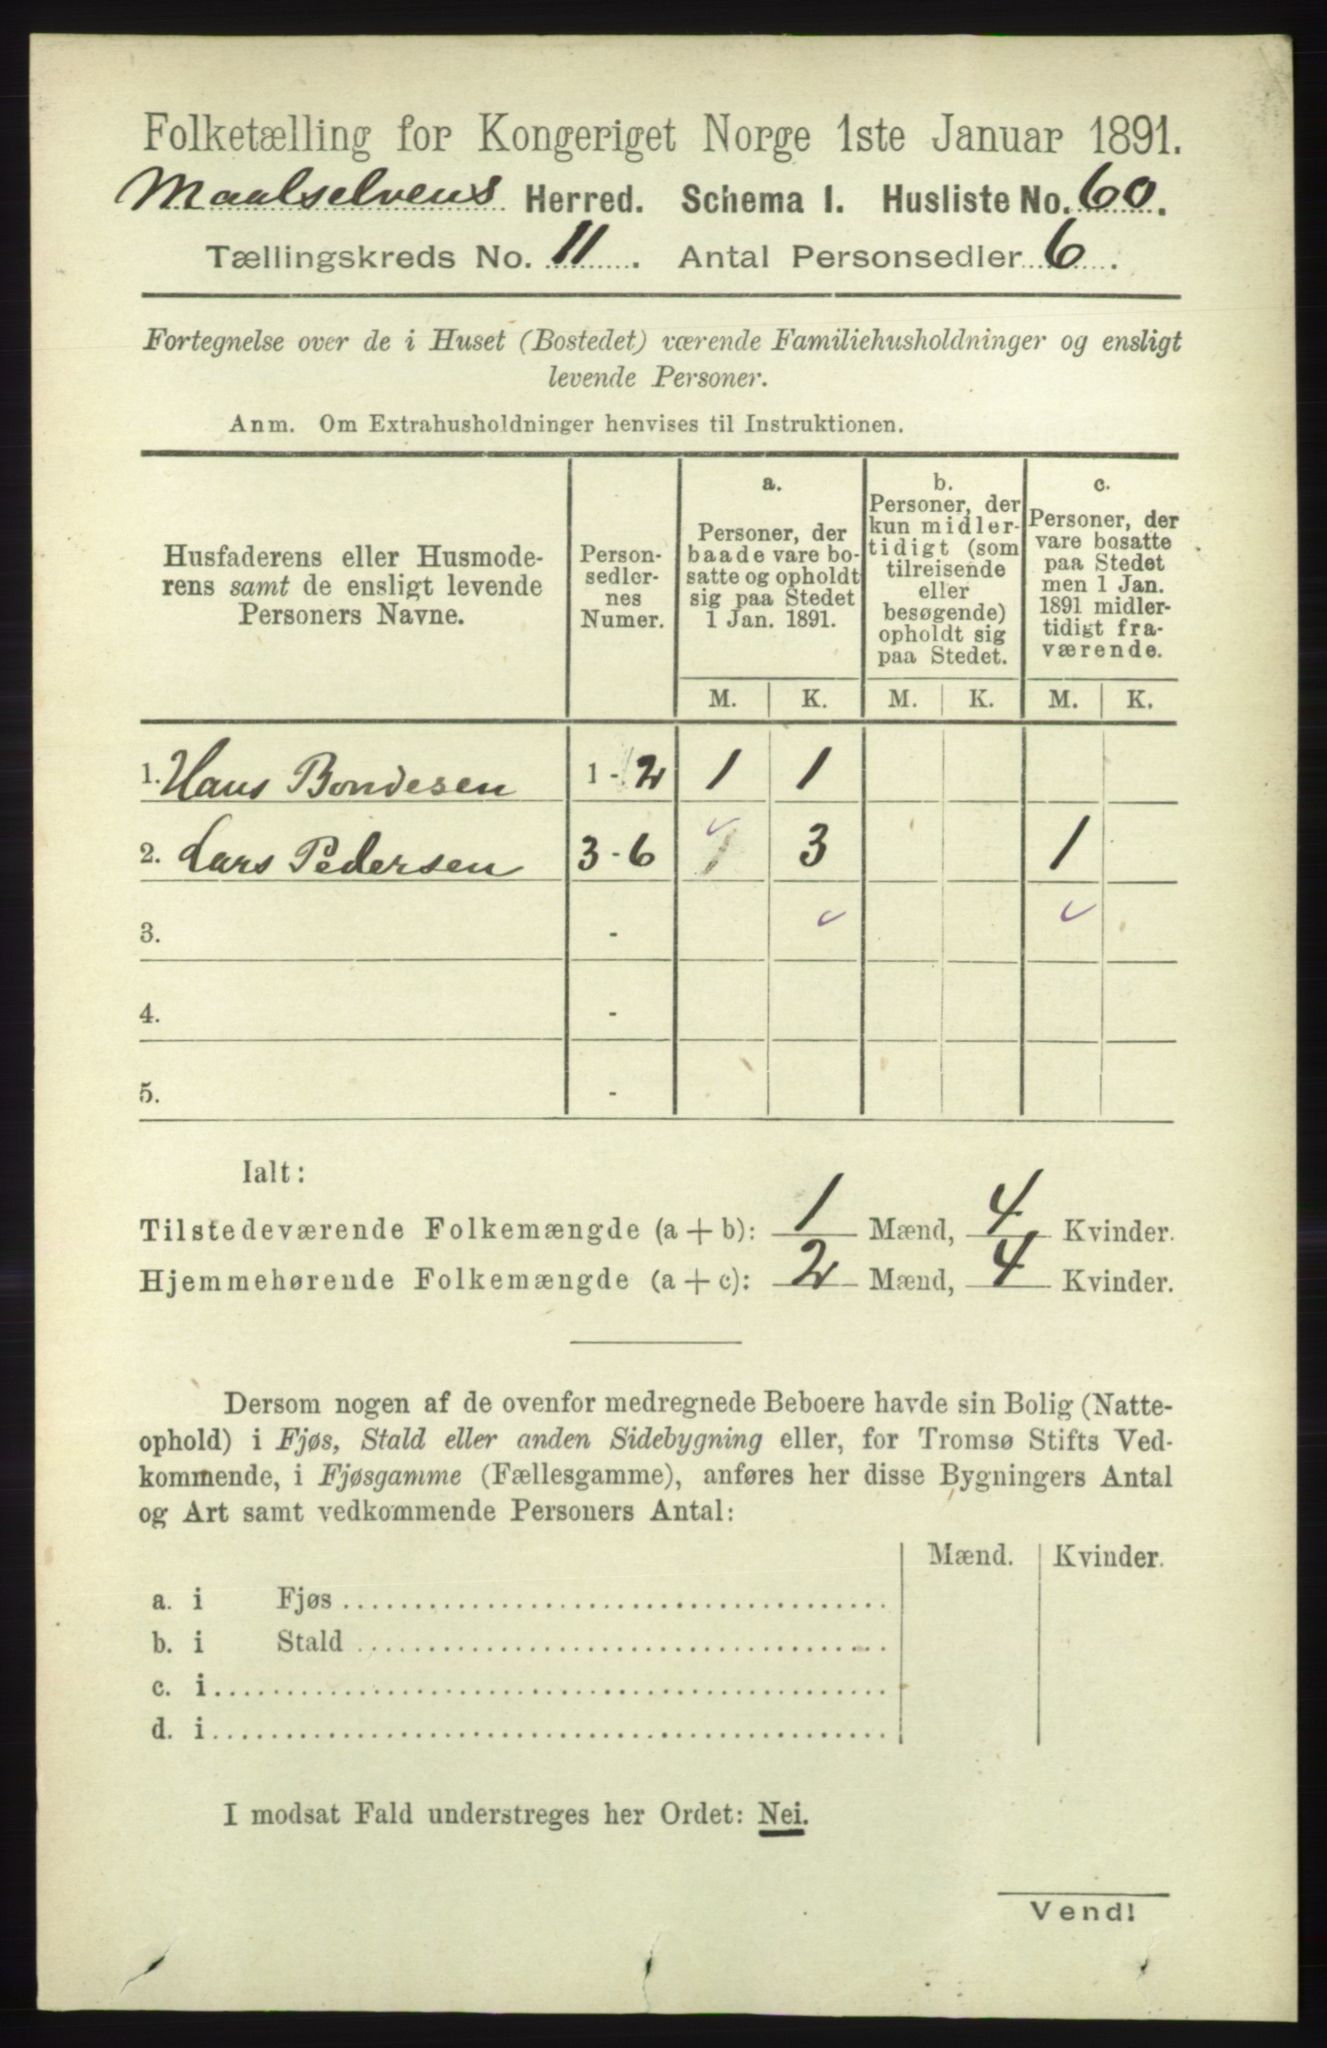 Folketælling for Kongeriget Norge 1ste Januar 1891.
Maalselvens Herred. Schema I. Husliste No. 60.
Tællingskreds No. 11. Antal Personsedler 6.
Fortegnelse over de i Huset (Bostedet) værende Familiehusholdninger og ensligt
levende Personer.
Anm. Om Extrahusholdninger henvises til Instruktionen.
Husfaderens eller Husmode-
rens samt de ensligt levende
Personers Navne.
Person-
sedler-
nes
Numer.
a.
Personer, der
baade vare bo-
satte og opholdt
sig paa Stedet
1 Jan. 1891.
b.
Personer, der
kun midler-
tidigt (som
tilreisende
eller
besøgende)
opholdt sig
paa Stedet.
c.
Personer, der
vare bosatte
paa Stedet
men 1 Jan.
1891 midler-
tidigt fra-
værende.
M. K. M. K. M. K.
1. Hans Bondesen 1 - 2 1 1
2. Lars Pedersen 3 - 6 1 3 1
3. -
4. -
5. -
Ialt:
Tilstedeværende Folkemængde (a + b): 1 Mænd, 4 Kvinder.
Hjemmehørende Folkemængde (a + c): 2 Mænd, 4 Kvinder.
Dersom nogen af de ovenfor medregnede Beboere havde sin Bolig (Natte-
ophold) i Fjøs, Stald eller anden Sidebygning eller, for Tromsø Stifts Ved-
kommende, i Fjøsgamme (Fællesgamme), anføres her disse Bygningers Antal
og Art samt vedkommende Personers Antal:
Mænd. Kvinder.
a. i Fjøs
b. i Stald
c. i
d. i
I modsat Fald understreges her Ordet: Nei.
Vend!